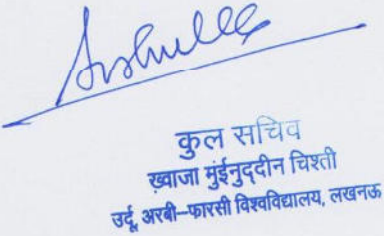 कुल सचिव
ख़्वाजा मुंईनुद्दीन चिश्ती
उर्दू, अरबी–फारसी विश्वविद्यालय, लखनऊ